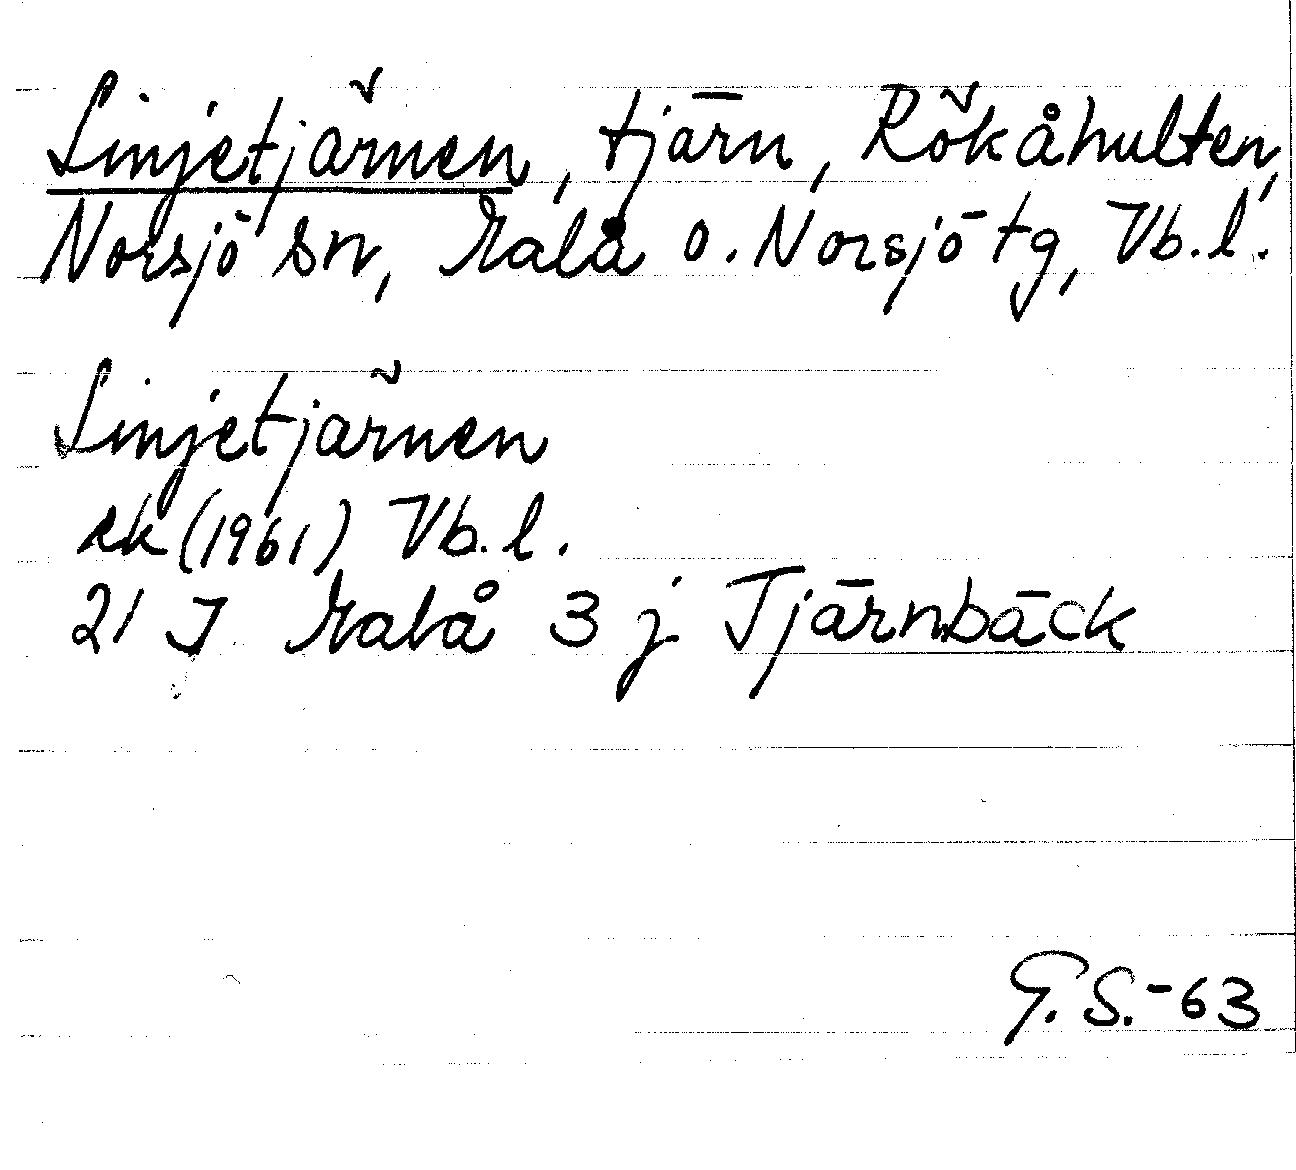 Linjetjärnen, tjärn, Rökåhulten,
Norsjö sn, Malå o. Norsjö tg, Vb.l.
Linjetjärnen
ek (1961) Vb.l.
21 J Malå 3 j Tjärnbäck
G.S.-63